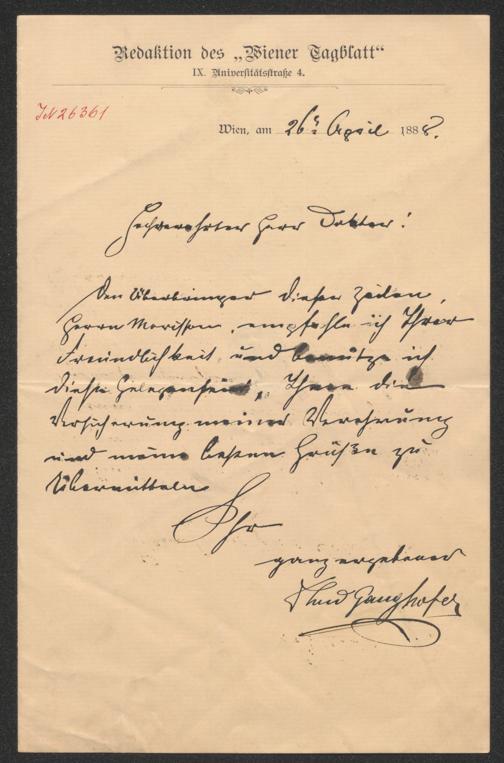 Redaktion des „Wiener Tagblatt“
IX. Universitätsstraße 4.
IN 26361
Wien, am 26. April 1888.
Hochverehrter Herr Doktor!
Den Überbringer dieser Zeilen,
Herrn, empfehle ich Ihrer
Freundlichkeit und benütze ich
diese Gelegenheit, Ihnen die
Versicherung meiner Verehrung
und meine besten Grüße zu
übermitteln
Ihr
ganz ergebener
Ganghofer